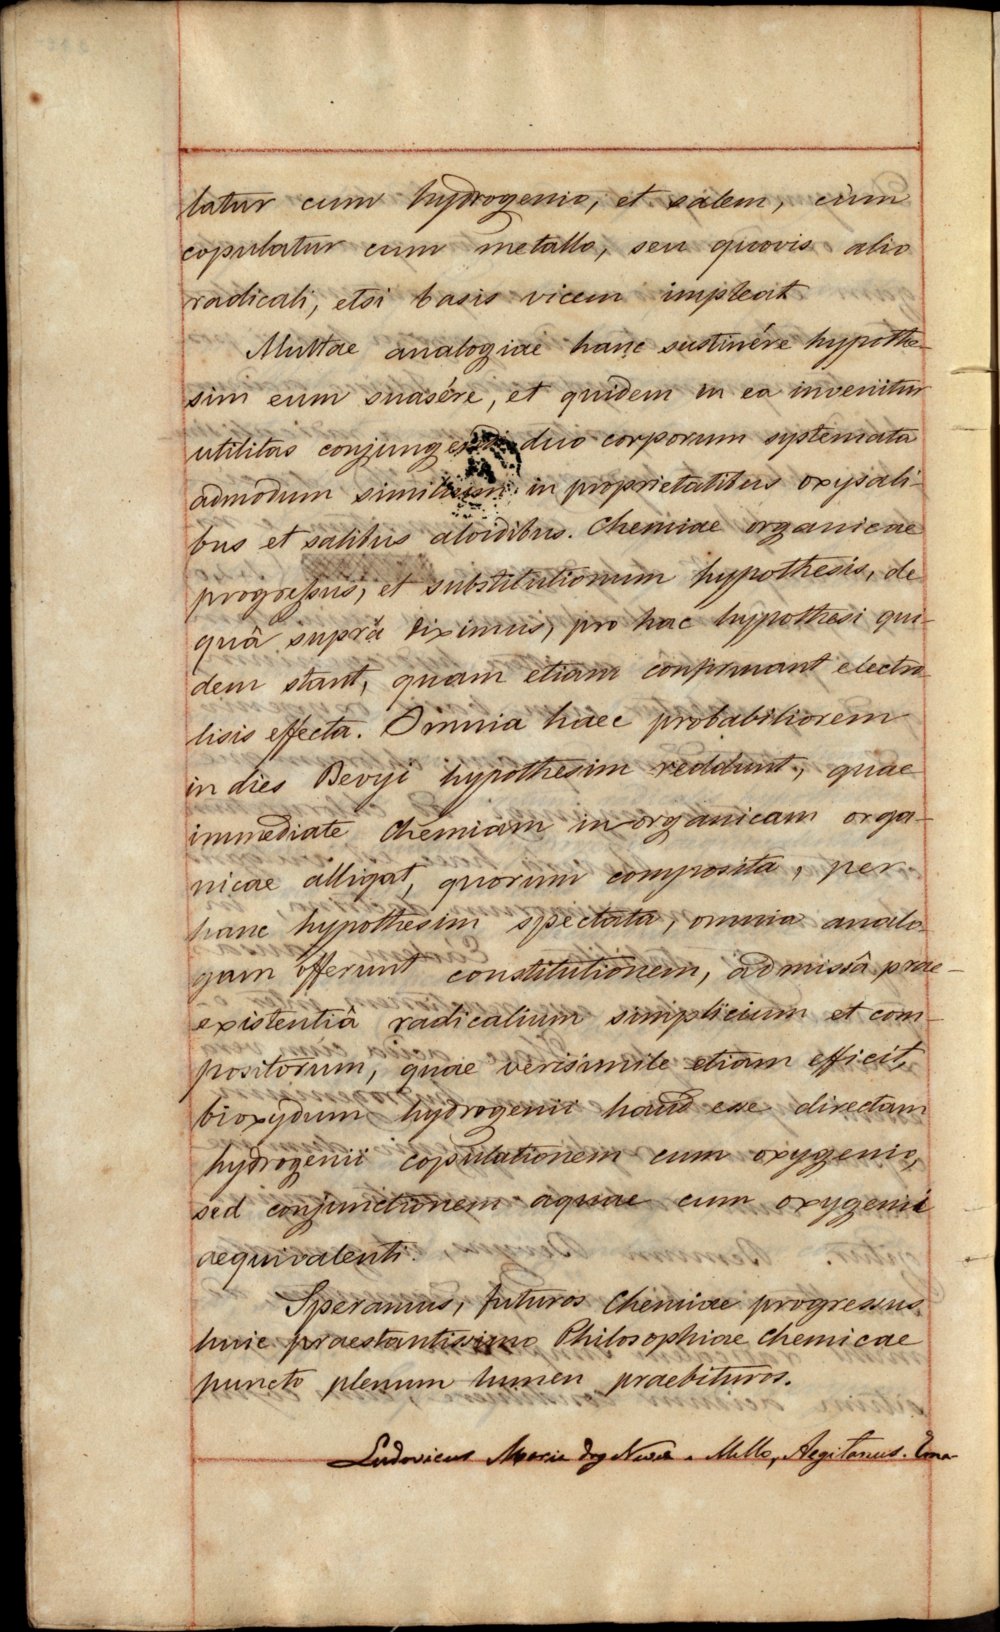 latur cum hydrogenio, et salem, cùm
copulatur cum metallo, seu quovis alio
radicali, etsi basis vicem impleat
Multae analogiae hanc sustinére hypothe-
sim eum suasére, et quidem in ea invenitur
utilitas conjungendi duo corporum systemata
admodum similium in proprietatibus oxysali-
bus et salibus aloidibus. Chemiae organicae
progressus, et substitutionum hypothesis, de
quâ suprà diximus, pro hac hypothesi qui-
dem stant, quam etiam confirmant electro
lisis effecta. Omnia haec probabiliorem
in dies Devyi hypothesim reddunt, quae
immediate Chemiam inorganicam orga-
nicae alligat, quorum composita, per
hanc hypothesim spectata, omnia analo-
gam offerunt constitutionem, admissâ prae-
existentiâ radicalium simplicium et com-
positorum, quae verisimile etiam efficit,
bioxydum hydrogenii haud esse directam
hydrogenii copulationem cum oxygenio,
sed conjunctionem aquae cum oxygenii
aequivalenti.
Speramus, futuros Chemiae progressus
huic praestantissimo Philosophiae Chemicae
puncto plenum lumen praebituros.
Ludovicus Maria Mello, Aegitanus.